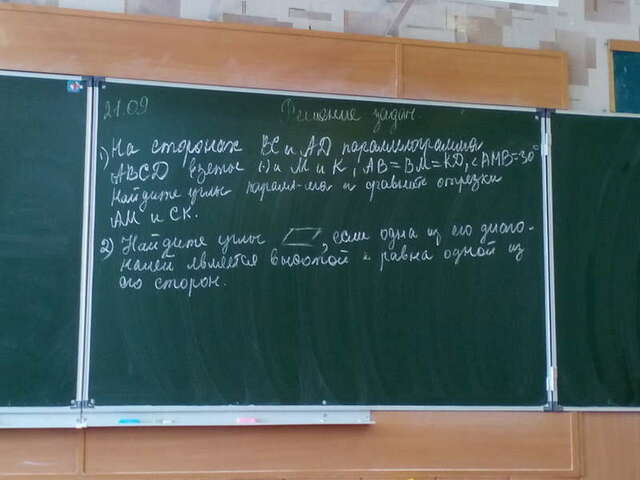 21.09
Решение задач.
1) На сторонах BC и AD параллелограмма
ABCD взяты (·) и M и K, AB = BM = KD, <AMB=30°
Найдите углы паралл-ма и сравните отрезки
AM и CK.
2) Найдите углы , если одна из его диаго-
налей является высотой и равна одной из
его сторон.